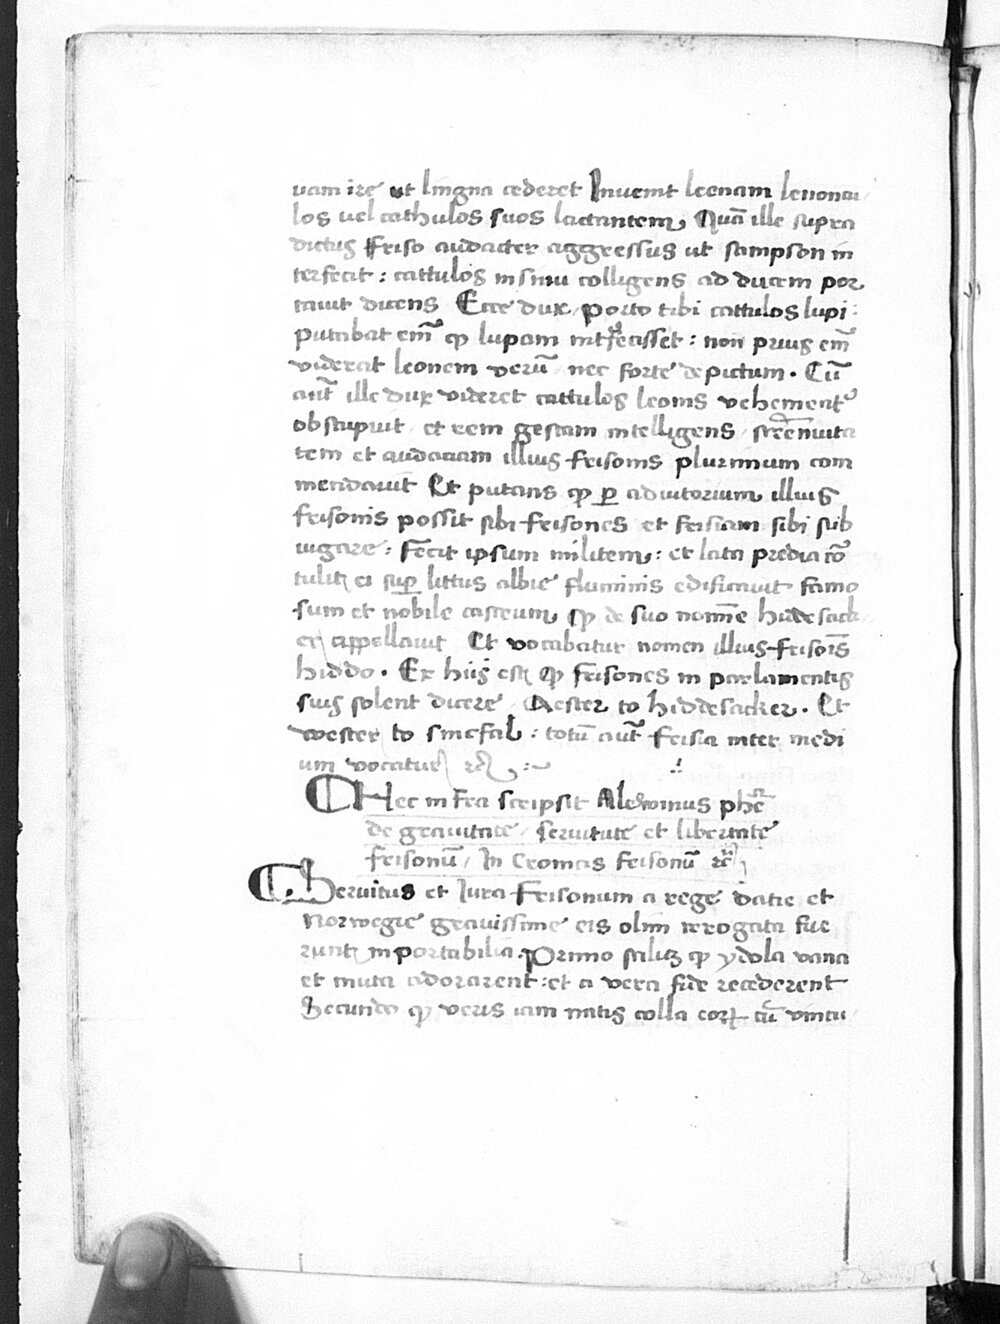 uam ire ut lingna cederet Inuenit leenam leuoncu
los uel cathulos suos lactantem, Quā ille supra
dictus ffriso audacter aggressus ut sampson in
terfecit : cattulos in sinu colligens ad ducem por
tauit dicens Ecce dux, porto tibi cattulos lupi :
Putabat em̄ ꝙ lupam intfecisset : non prius em̄
viderat leonem verū / nec forte depictum . Cū
aūt ille dux videret cattulos leonis vehement᷑
obstupuit / et rem gestam intelligens / strēnuita
tem et audatiam illius frisonis plurimum com
mendauit Et putans ꝙ ꝑ adiutorium illius
frisonis possit sibi frisones et frisiam sibi sub
iugare : fecit ipsum militem : et lata predia cō
tulit ei suꝑ littus albie fluminis edificauit famo
sum et nobile castrum, ꝙ de suo nomīe hiddesack
er appellauit Et vocabatur nomen illius frisoīs
hiddo . Ex hiis est ꝙ frisones in parlamentis
suis solent dicere / Aester to hiddesacker . Et
wester to sincfal : totū aūt frisia inter medi
um vocatur ꝛc̄
Hec infra scripsit Alewinus phc̄
de grauitate / seruitute et libertate
frisonū / In Cronicis frisonū ꝛc̄
Seruitus et Iura frisonum a rege datie et
Norwegie grauissime eis olim irrogata fue
runt inportabilia . Primo scilicꝫ ꝙ ydola vana
et muta adorarent : et a vera fide recederent
Secundo ꝙ veris iam natis colla coꝝ cū vincu